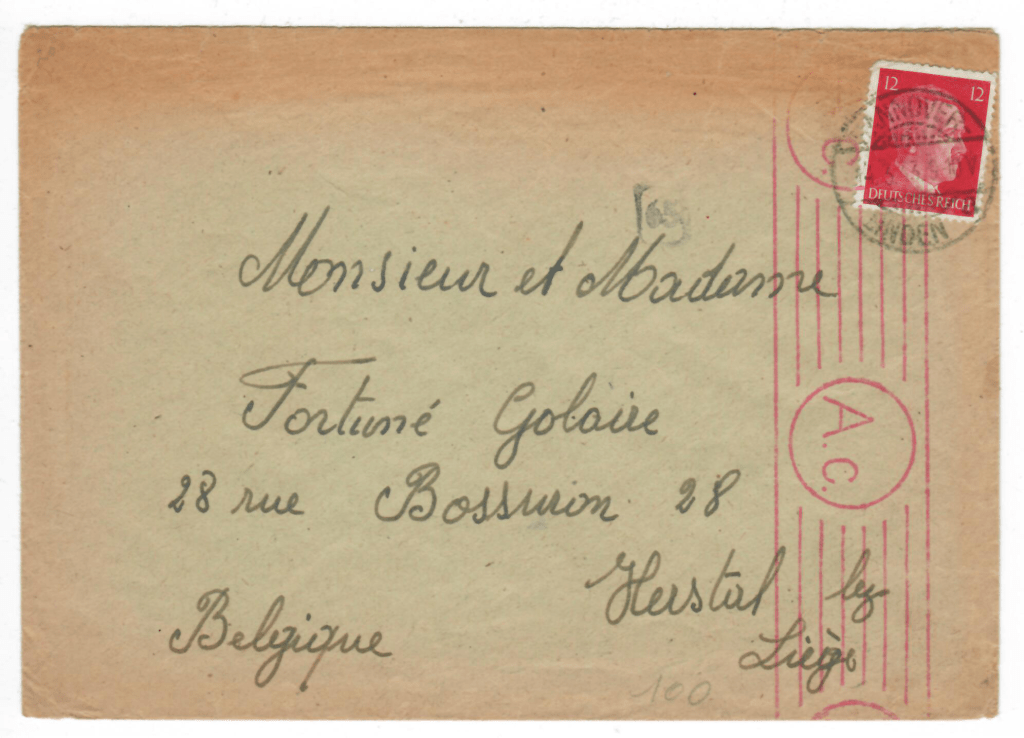 12 12
DEUTSCHES REICH
HANNOVER
LINDEN
69
Monsieur et Madame
Fortuné Golaire
28 rue Bossuron 28
Herstal lez
Liège
Belgique
A.c.
100